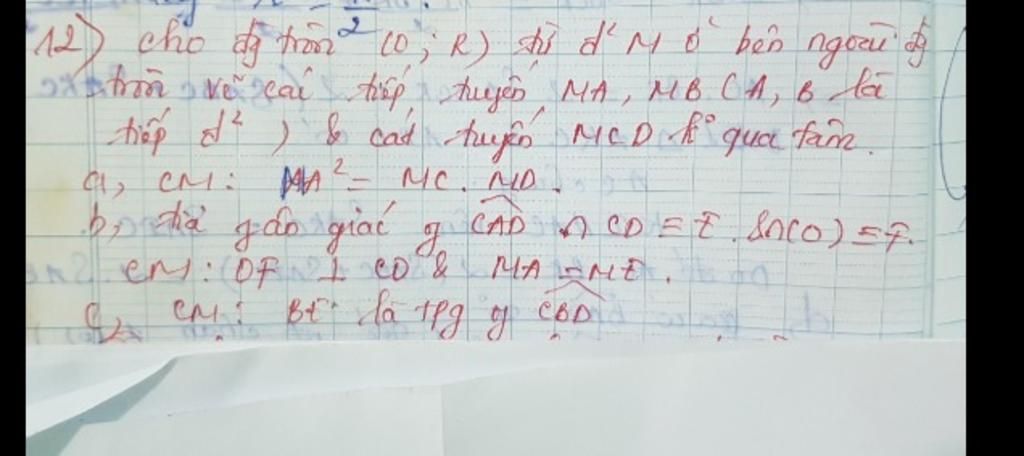 12) cho đg tròn (O; R) từ đ² M ở bên ngoài đg
tròn vẽ các tiếp tuyến MA, MB (A, B là
tiếp đ²) & cát tuyến MCD k° qua tâm.
a, CM: MA² = MC. MD.
b, tia giác g CAD ∩ CD = E. ∩ (O) = F.
CM: OF ⊥ CD & MA = ME.
c, CM: BE là tpg g CBD